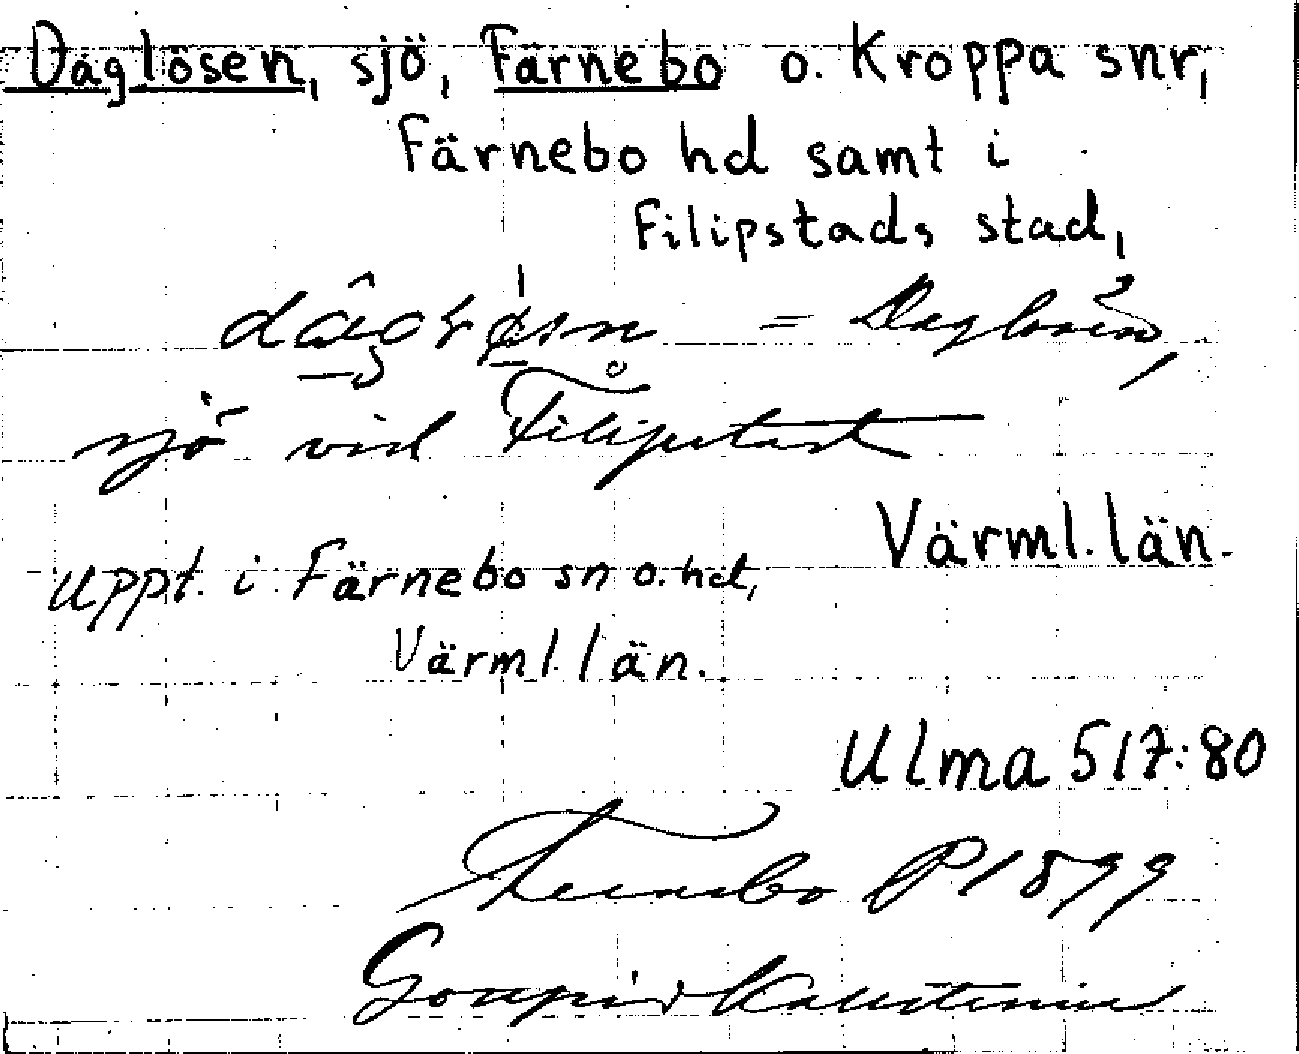 Daglösen, sjö, Färnebo o. Kroppa snr,
Färnebo hd samt i
Filipstads stad,
= Daglösen,
sjö vid Filipstad
Värml. län.
uppt. i Färnebo sn o. hd,
Värml. län.
Ulma 517:80
Fernebo P 1899
Gottfrid Kallstenius